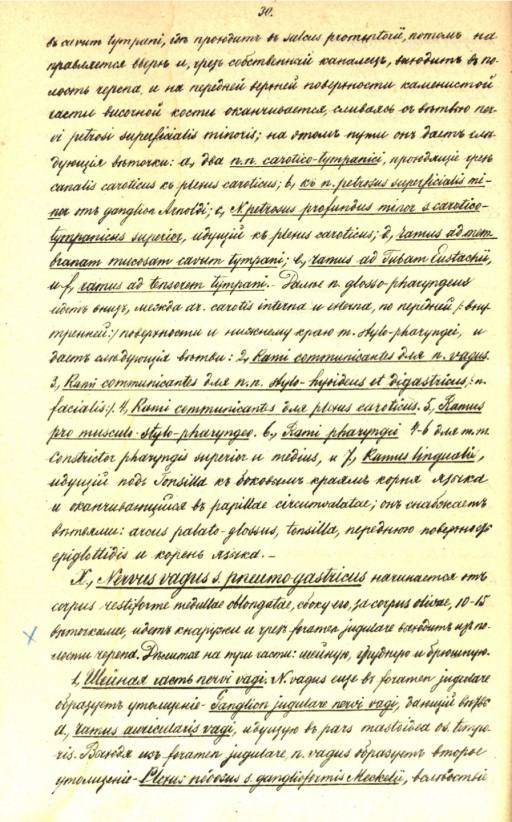 30.
въ cavum tympani, гдѣ проходитъ въ sulcus promontorii, потомъ на-
правляется вверхъ и, чрезъ собственный каналецъ, выходитъ въ по-
лость черепа, и на передней верхней поверхности каменистой
части височной кости оканчивается, сливаясь съ вѣтвью ner-
vi petrosi superficialis minoris; на этомъ пути онъ даетъ слѣ-
дующія вѣточки: a, два n.n. carotico-tympanici, проходящіе чрезъ
canalis caroticus къ plexus caroticus; b, къ n. petrosus superficialis mi-
nor отъ ganglion Arnoldi; c, N. petrosus profundus minor s. carotico-
tympanicus superior, идущій къ plexus caroticus; d, ramus ad mem
branam mucosam cavum tympani; e, ramus ad Tubam Eustachii,
и f, ramus ad tensorem tympani. - Далѣе n. glosso-pharyngeus
идетъ внизъ, между ar. carotis interna и externa, по передней /:вну
тренней:/ поверхности и нижнему краю m. stylo-pharyngei, и
даетъ слѣдующія вѣтви: 2, Rami communicantes для n. vagus.
3, Rami communicantes для n.n. stylo-hyoideus et digastricus /:n.
facialis:/. 4, Rami communicantes для plexus caroticus. 5, Ramus
pro musculo-stylo-pharyngeo. 6, Rami pharyngei 4-6 для m.m.
constrictor pharyngis superior и medius, и 7, Ramus lingualis,
идущій подъ Tonsilla къ боковымъ краямъ корня языка
и оканчивающійся въ papillae circumvalatae; онъ снабжаетъ
вѣтвями: arcus palato-glossus, tonsilla, переднюю поверхность
epiglottidis и корень языка. -
X., Nervus vagus s. pneumo-gastricus начинается отъ
corpus restiforme medullae oblongatae, сбоку его, за corpus olivae, 10-15
вѣточками, идетъ кнаружи и чрезъ foramen jugulare выходитъ изъ по-
лости черепа. Дѣлится на три части: шейную, грудную и брюшную.
1, Шейная часть nervi vagi. N. vagus еще въ foramen jugulare
образуетъ утолщеніе - Ganglion jugulare nervi vagi, дающій вѣтвь
a, ramus auricularis vagi, идущую въ pars mastoidea os. tempo-
ris. Выходя изъ foramen jugulare, n. vagus образуетъ второе
утолщеніе - Plexus nodosus s. gangliiformis Meckelii, вслѣдствіе